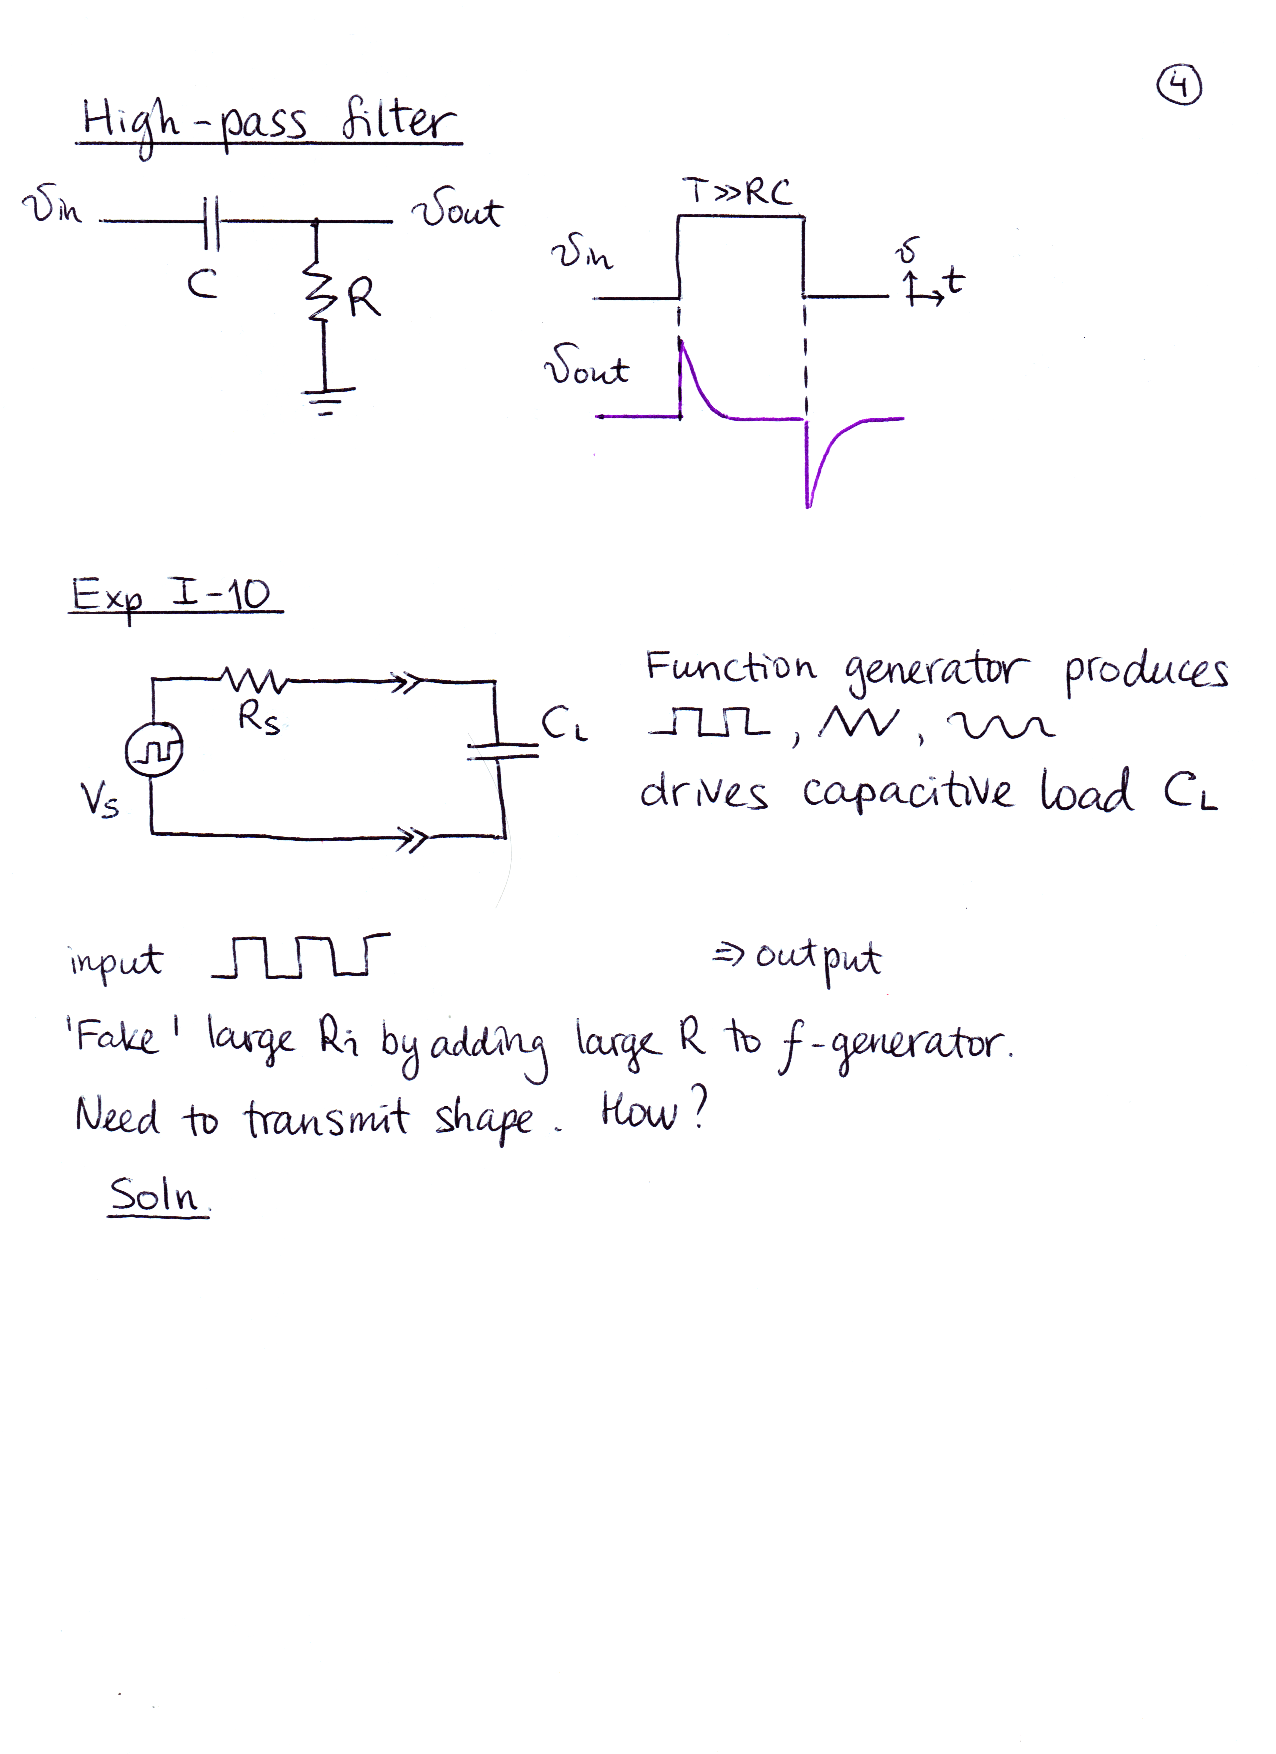 4
High-pass filter
Vin
Vout
C
R
T≫RC
Vin
v
t
Vout
Exp I-10
Rs
CL
Vs
Function generator produces
, , 
drives capacitive load CL
input
⇒ output
'Fake' large Ri by adding large R to f-generator.
Need to transmit shape. How?
Soln.